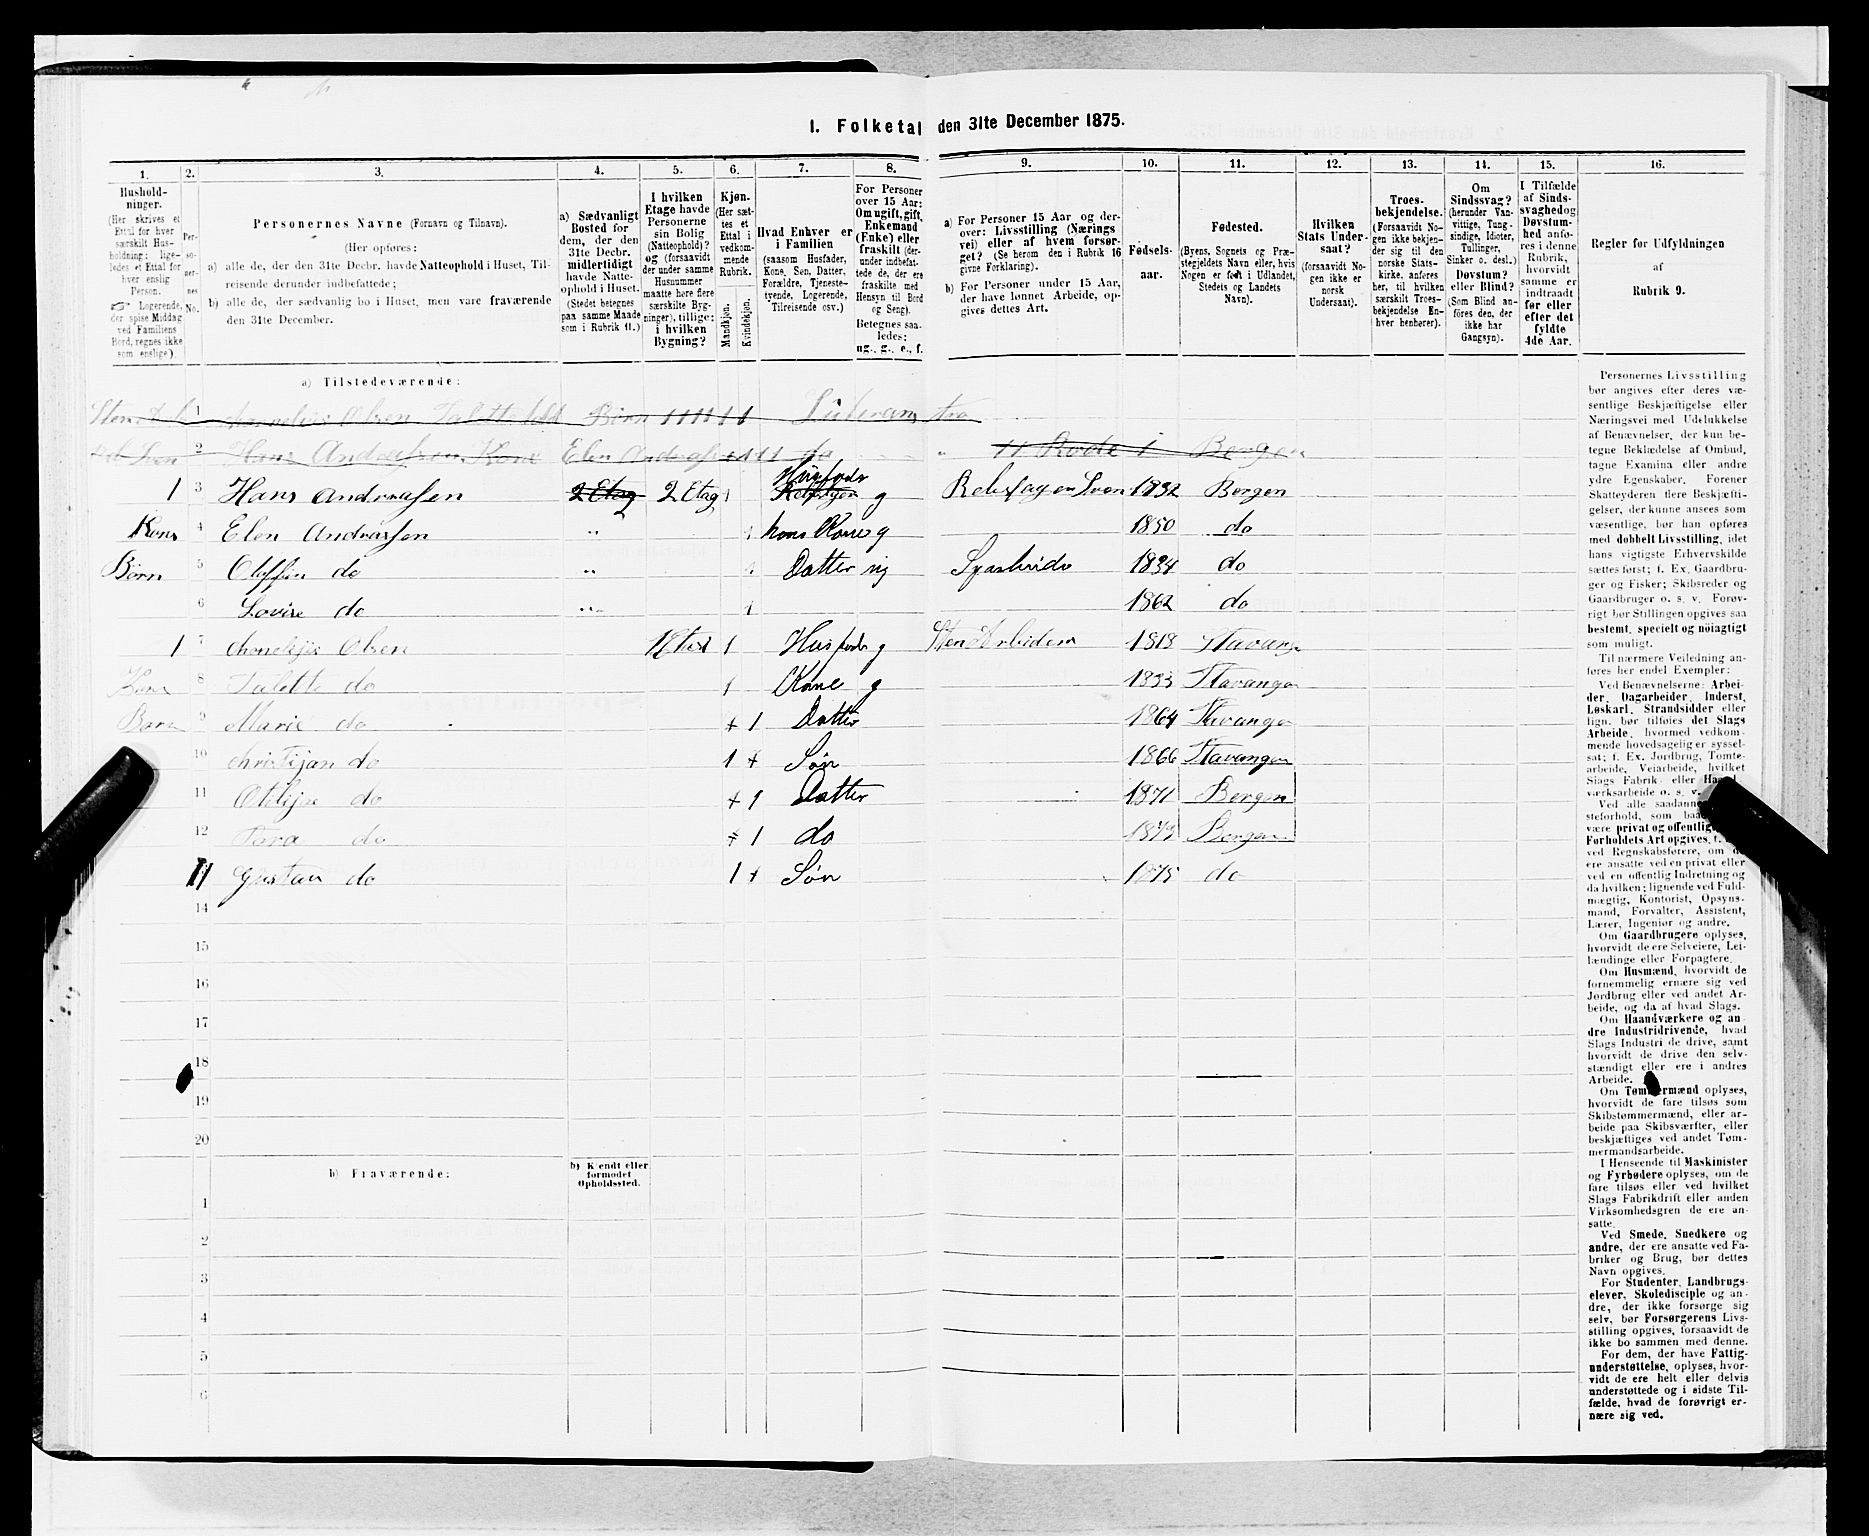 1. Folketal den 31te December 1875.
1.
2.
3.
4.
5.
6.
7.
8.
9.
10.
11.
12.
13.
14.
15.
16.
Hushold-
ninger.
(Her skrives et
Ettal for hver
særskilt Hus-
holdning; lige-
ledes et Ettal for
hver enslig
Person.
☞ Logerende,
der spise Middag
ved Familiens
Bord, regnes ikke
som enslige).
Per-
so-
ner-
nes
No.
Personernes Navne (Fornavn og Tilnavn).
(Her opføres:
a) alle de, der den 31te Decbr. havde Natteophold i Huset, Til-
reisende derunder indbefattede;
b) alle de, der sædvanlig bo i Huset, men vare fraværende
den 31te December.
a) Sædvanligt
Bosted for
dem, der den
31te Decbr.
midlertidigt
havde Natte-
ophold i Huset.
(Stedet betegnes
paa samme Maade
som i Rubrik 11.)
I hvilken
Etage havde
Personerne
sin Bolig
(Natteophold)?
og (forsaavidt
der under samme
Husnummer
maatte høre flere
særskilte Byg-
ninger), tillige:
i hvilken
Bygning?
Kjøn.
(Her sæt-
tes et
Ettal i
vedkom-
mende
Rubrik.
Mandkjøn.
Kvindekjøn.
Hvad Enhver er
i Familien
(saasom Husfader,
Kone, Søn, Datter,
Forældre, Tjeneste-
tyende, Logerende,
Tilreisende osv.)
For Personer
over 15 Aar:
Om ugift, gift,
Enkemand
(Enke) eller
fraskilt (der-
under indbefat-
tede de, der ere
fraskilte med
Hensyn til Bord
og Seng).
Betegnes saa-
ledes:
ug., g., e., f.
a) For Personer 15 Aar og der-
over: Livsstilling (Nærings
vei) eller af hvem forsør-
get? (Se herom den i Rubrik 16
givne Forklaring).
b) For Personer under 15 Aar,
der have lønnet Arbeide, op-
gives dettes Art.
Fødsels-
aar.
Fødested.
(Byens, Sognets og Præ-
stegjeldets Navn eller, hvis
Nogen er født i Udlandet,
Stedets og Landets
Navn).
Hvilken
Stats Under-
saat?
(forsaavidt No-
gen ikke er
norsk
Undersaat).
Troes-
bekjendelse.
(Forsaavidt No-
gen ikke bekjen-
der sig til den
norske Stats-
kirke, anføres
her, til hvilken
særskilt Troes-
bekjendelse En-
hver henhører).
Om
Sindssvag?
(herunder Van-
vittige, Tung-
sindige, Idioter,
Tullinger,
Sinker o. desl.)
Døvstum?
eller Blind?
(Som Blind an-
föres den, der
ikke har
Gangsyn).
I Tilfælde
af Sinds-
svaghed og
Døvstum-
hed anfø-
res i denne
Rubrik,
hvorvidt
samme er
indtraadt
før eller
efter det
fyldte
4de Aar.
Regler for Udfyldningen
af
Rubrik 9.
a) Tilstedeværende:
1 Olsen Talette Børn 1 1 1 1 1 1
2 Hans Andreassen Kone Elen Andreassen do 11 Rode i Bergen
1 3 Hans Andreassen 2 Etag 2 Etag 1 Husfader g 1832 Bergen
Kone 4 Elen Andreassen " 1 hans Kone g 1850 do
Børn 5 Oloffin do " 1 Datter ug 1834 do
6 Lovise do " 1 1862 do
1 7 Olsen 1 1 Husfader g Stenarbeider 1819 Stavanger
Kone 8 Talette do 1 Kone g 1833 Stavanger
Barn 9 Marie do + 1 Datter 1864 Stavanger
10 christijan do 1 + Søn 1866 Stavanger
11 Otilije do + 1 Datter 1871 Bergen
12 Tora do + 1 do 1873 Bergen
Gustav do 1 + Søn 1875 do
14
15
16
17
18
19
20
b) Fraværende:
b) Kjendt eller
formodet
Opholdssted.
1
2
3
4
5
6
Personernes Livsstilling
bør angives efter deres væ-
sentlige Beskjæftigelse eller
Næringsvei med Udelukkelse
af Benævnelser, der kun be-
tegne Beklædelse af Ombud,
tagne Examina eller andre
ydre Egenskaber. Forener
Skatteyderen flere Beskjæfti-
gelser, der kunne ansees som
væsentlige, bør han opføres
med dobbelt Livsstilling, idet
hans vigtigste Erhvervskilde
sættes først; f. Ex. Gaardbru-
ger og Fisker; Skibsreder og
Gaardbruger o. s. v. Forøv-
rigt bør Stillingen opgives saa
bestemt, specielt og nöiagtigt
som muligt.
Til nærmere Veiledning an-
føres her endel Exempler:
Ved Benævnelserne: Arbei-
der, Dagarbeider, Inderst,
Løskarl, Strandsidder eller
lign. bør tilføies det Slags
Arbeide, hvormed vedkom-
mende hovedsagelig er syssel-
sat; f. Ex. Jordbrug, Tomte-
arbeide, Veiarbeide, hvilket
Slags Fabrik- eller
værksarbeide o. s. v.
Ved alle saadanne
steforhold, som
være privat og offentlig
Forholdets Art opgives,
ved Regnskabsførere, om
ere ansatte ved en privat eller
ved en offentlig Indretning og
da hvilken; lignende ved Fuld-
mægtig, Kontorist, Opsyns-
mand, Forvalter, Assistent,
Lærer, Ingeniør og andre.
Om Gaardbrugere oplyses,
hvorvidt de ere Selveiere, Lei-
lændinge eller Forpagtere.
Om Husmænd, hvorvidt de
fornemmelig ernære sig ved
Jordbrug eller ved andet Ar-
beide, og da af hvad Slags.
Om Haandværkere og an-
dre Industridrivende, hvad
Slags Industri de drive, samt
hvorvidt de drive den selv-
stændigt eller ere i andres
Arbeide.
Om Tømmermænd oplyses,
hvorvidt de fare tilsøs som
Skibstømmermænd, eller ar-
beide paa Skibsværfter, eller
beskjæftiges ved andet Tøm-
mermandsarbeide.
I Henseende til Maskinister
og Fyrbødere oplyses, om de
fare tilsøs eller ved hvilket
Slags Fabrikdrift eller anden
Virksomhedsgren de ere an-
satte.
Ved Smede, Snedkere og
andre, der ere ansatte ved Fa-
briker og Brug, bør dettes
Navn opgives.
For Studenter, Landbrugs-
elever, Skoledisciple og an-
dre, der ikke forsørge sig
selv, bør Forsørgerens Livs-
stilling opgives, forsaavidt de
ikke bo sammen med denne.
For dem, der have Fattig-
understøttelse, oplyses, hvor-
vidt de ere helt eller delvis
understøttede og i sidste Til-
fælde, hvad de forøvrigt er-
nære sig ved.